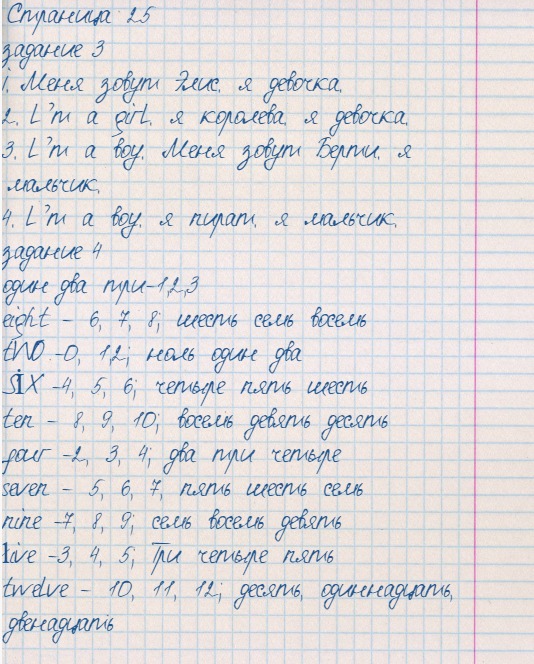 Страница 25
задание 3
1. Меня зовут Элис. я девочка.
2. I'm a girl. я королева. я девочка.
3. I'm a boy. Меня зовут Берти. я
мальчик.
4. I'm a boy. я пират. я мальчик.
задание 4
один два три-1,2,3
eight - 6, 7, 8; шесть семь восемь
two -0, 1,2; ноль один два
six -4, 5, 6; четыре пять шесть
ten - 8, 9, 10; восемь девять десять
four -2, 3, 4; два три четыре
seven - 5, 6, 7, пять шесть семь
nine -7, 8, 9; семь восемь девять
five -3, 4, 5; Три четыре пять
twelve - 10, 11, 12; десять, одиннадцать,
двенадцать